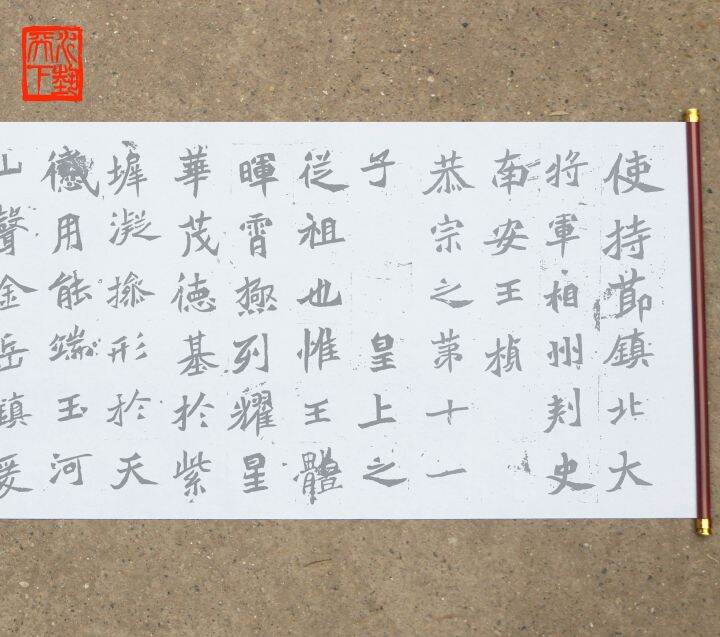 天下
使持莭鎮北大
将軍相州刾史
南安王楨
恭宗之苐十一
子 皇上之
從祖也惟王體
暉霄極列耀星
華茂德基於紫
墀凝操形於天
用能端玉河
山聲金岳鎮爰